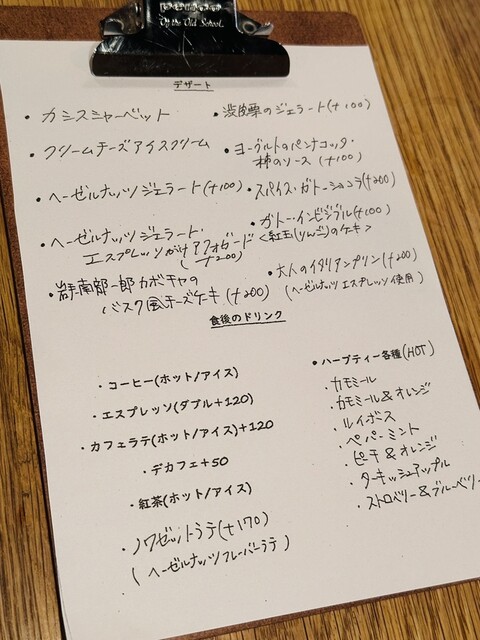 Of the Old School.
デザート
・カシスシャーベット
・クリームチーズアイスクリーム
・ヘーゼルナッツジェラート(+100)
・ヘーゼルナッツジェラート・
エスプレッソがけアフォガード
(+200)
・岩手南部一郎カボチャの
バスク風チーズケーキ(+200)
・渋皮栗のジェラート(+100)
・ヨーグルトのパンナコッタ・
柿のソース(+100)
・スパイス・ガトーショコラ(+200)
・ガトー・インビジブル(+100)
<紅玉(りんご)のケーキ>
・大人のイタリアンプリン(+200)
(ヘーゼルナッツエスプレッソ使用)
食後のドリンク
・コーヒー(ホット/アイス)
・エスプレッソ(ダブル+120)
・カフェラテ(ホット/アイス)+120
・デカフェ+50
・紅茶(ホット/アイス)
・ノワゼットラテ(+170)
(ヘーゼルナッツフレーバーラテ)
・ハーブティー各種(HOT)
・カモミール
・カモミール&オレンジ
・ルイボス
・ペパーミント
・ピーチ&オレンジ
・ターキッシュアップル
・ストロベリー&ブルーベリー